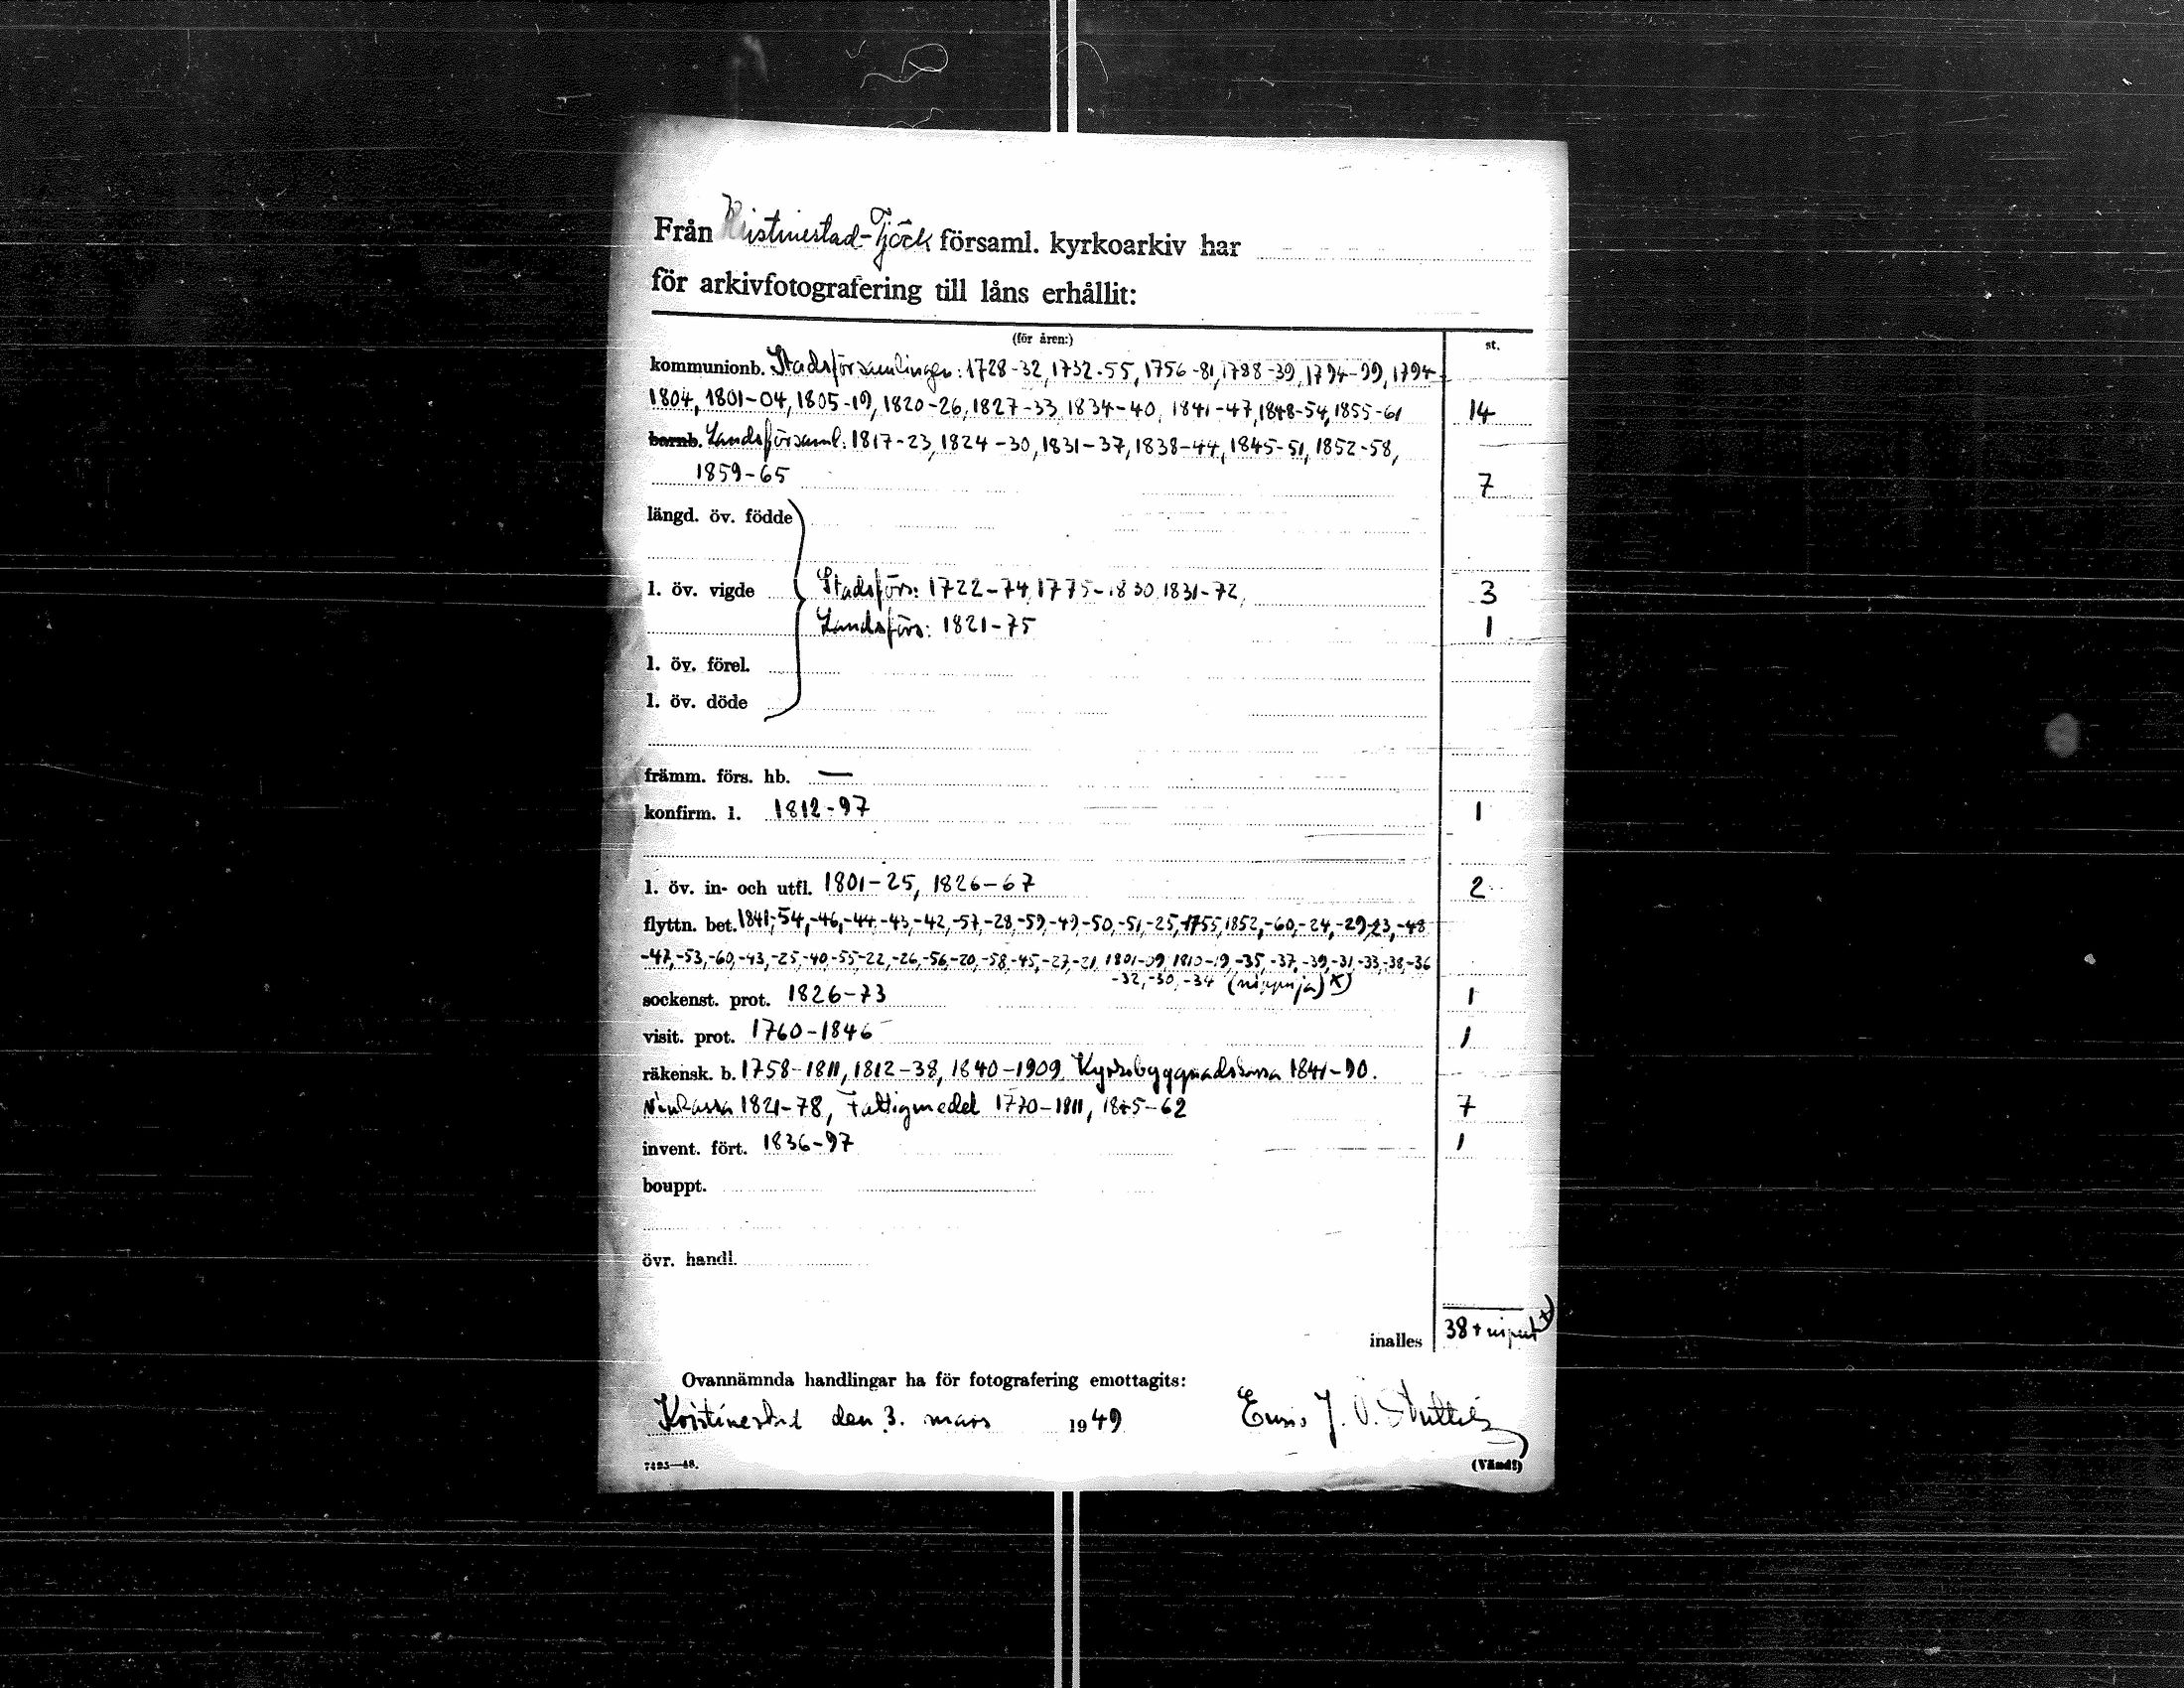 Från Kristinestad-Tjöck församl. kyrkoarkiv har
för arkivfotografering till låns erhållit:
(för åren:) st.
kommunionb. Stadsförsamlingen: 1728-32, 1732-55, 1756-81, 1788-39, 1794-99, 1794-
1804, 1801-04, 1805-19, 1820-26, 1827-33, 1834-40, 1841-47, 1848-54, 1855-61 14
barnb. Landsförsaml: 1817-23, 1824-30, 1831-37, 1838-44, 1845-51, 1852-58,
1859-65 7
längd. öv. födde
l. öv. vigde Stadsförs: 1722-74, 1775-1830, 1831-72, 3
Landsförs: 1821-75 1
l. öv. förel.
l. öv. döde
främm. förs. hb. —
konfirm. l. 1812-97 1
l. öv. in- och utfl. 1801-25, 1826-67 2
flyttn. bet. 1841,-54,-46,-44,-43,-42,-57,-28,-59,-49,-50,-51,-25, 1755, 1852,-60,-24,-29,-23,-48
-47,-53,-60,-43,-25,-40,-55,-22,-26,-56,-20,-58,-45,-27,-21, 1801-09, 1810-19,-35,-37,-39,-31,-33,-38,-36
-32,-30,-34 (nippuja) x)
sockenst. prot. 1826-73 1
visit. prot. 1760-1846 1
räkensk. b. 1758-1811, 1812-38, 1840-1909. Kyrkobyggnadskassa 1841-90.
Vinkassa 1821-78, Fattigmedel 1770-1811, 1845-62 7
invent. fört. 1836-97 1
bouppt.
övr. handl.
inalles 38 + niput x)
Ovannämnda handlingar ha för fotografering emottagits:
Kristinestad den 3. mars 1949 J. O.
7493—48. (Vänd!)